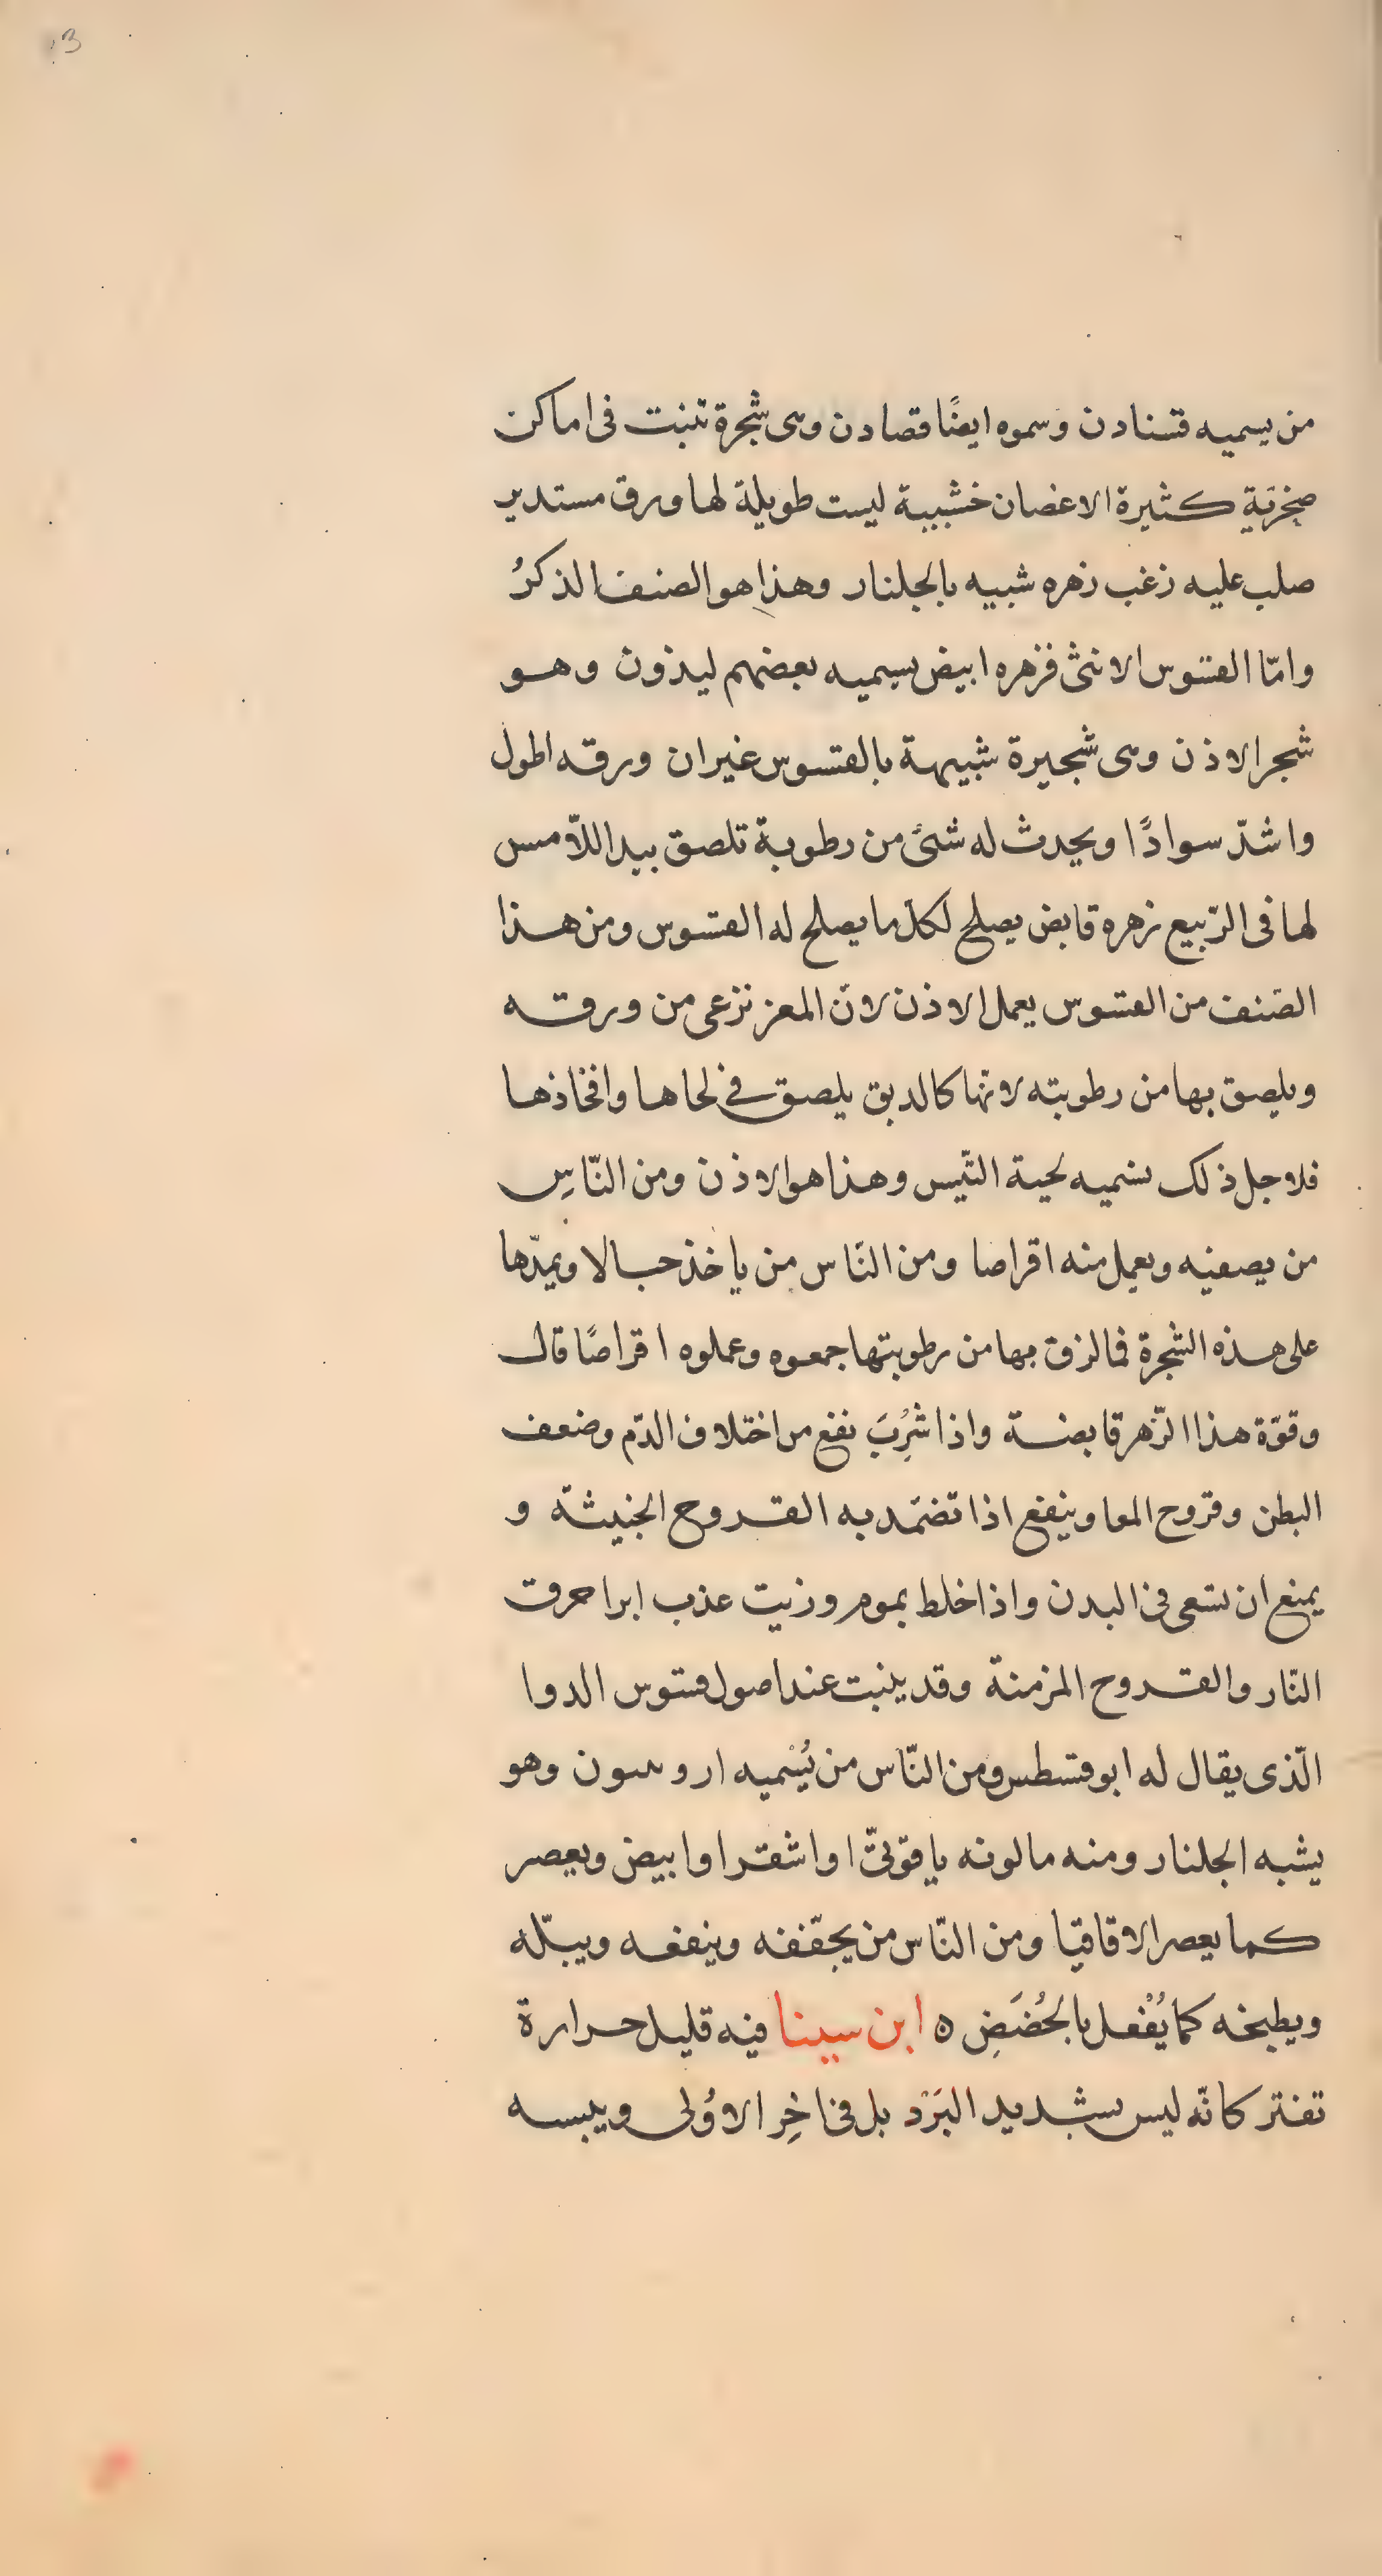 13
من يسميه قتنادن وسموه ايضًا قصادن وهى شجرة تنبت فى اماكن
صخريّة كثيرة الاغصان خشبية ليست طويلة لها ورق مستدير
صلب عليه زغب زهره شبيه بالجلنار وهذا هو الصنف الذكرُ
وامّا القتسوس الانثى فزهره ابيض يسميه بعضهم ليذون وهو
شجر الاذن وهى شجيرة شبيهة بالقتسوس غير ان ورقه اطول
واشدّ سوادًا ويحدث له شئ من رطوبة تلصق بيد اللّامس
لها فى الرّبيع زهره قابض يصلح لكل ما يصلح له القتسوس ومن هذا
الصّنف من القتسوس يعمل الاذن لانّ المعز تزعى من ورقه
ويلصق بها من رطوبته لانها كالدبق يلصق في لحاها وافخاذها
فلاجل ذلك نسميه لحية التّيس وهذا هو الاذن ومن النّاسِ
من يصفيه ويعمل منه اقراصا ومن النّاس من ياخذ حبالا ويمدّها
على هذه الشجرة فما لزق بها من رطوبتها جمعوه وعملوه اقراصًا قال
وقوّة هذا الزّهر قابضة واذا شُرِبَ نفع من اختلاف الدّم وضعف
البطن وقروح المعا وينفع اذا تضمّد به القروح الخبيثة و
يمنع ان تسعى فى البدن واذا خلط بموم وزيت عذب ابرا حرقت
النّار والقروح المزمنة وقد ينبت عند اصول قستوس الدوا
الّذى يقال له ابوقسطس ومن النّاس من يُسْميه اروسون وهو
يشبه الجلنار ومنه ما لونه ياقوتىّ او اشقر او ابيض ويعصر
كما يعصر الاقاقيا ومن النّاس من يجفّفه وينقعه ويبلّه
ويطبخه كما يُفْعل بالحُضَضِ ه ابن سينا فيه قليل حرارة
تفتر كانّه ليس بشديد البَرْد بل فى اخِر الاوُلى ويبسه